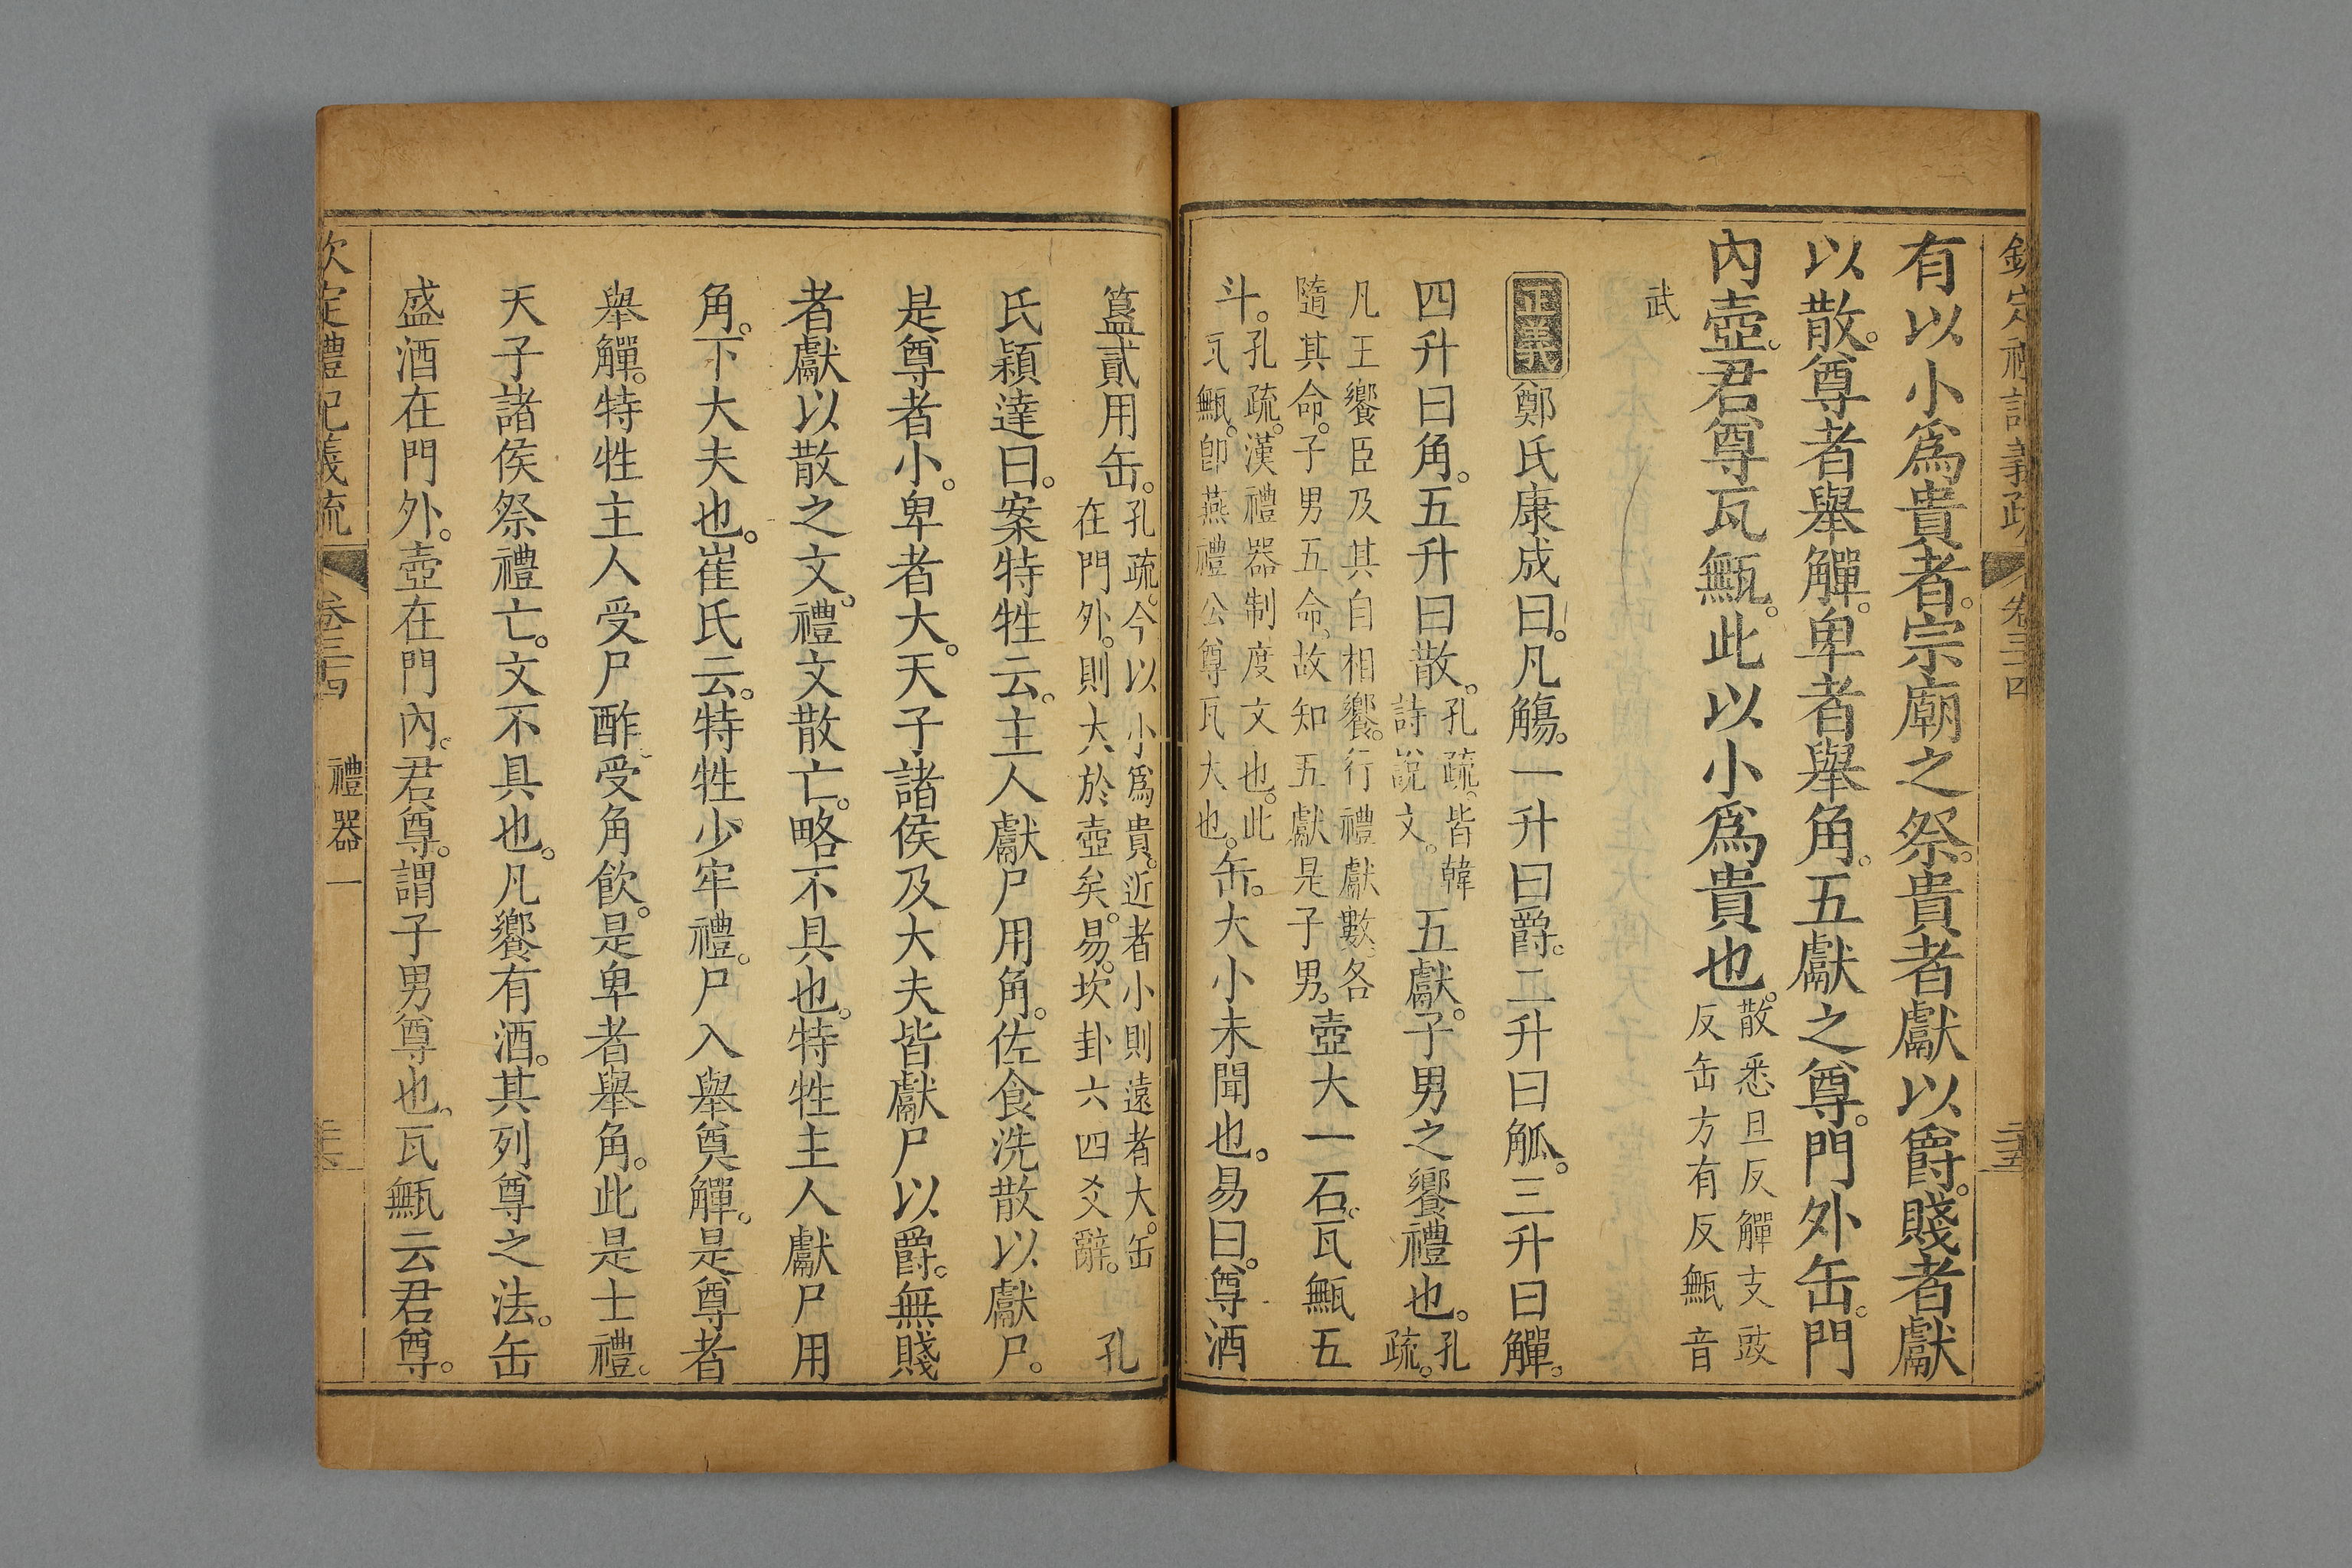 欽定禮記義疏 卷三十四 三五
有以小爲貴者。宗廟之祭。貴者獻以爵。賤者獻
以散。尊者舉觶。卑者舉角。五獻之尊。門外缶。門
內壺。君尊瓦甒。此以小爲貴也。散悉旦反觶支豉反缶方有反甒音
武
正義鄭氏康成曰。凡觴。一升曰爵。二升曰觚。三升曰觶。
四升曰角。五升曰散。孔疏。皆韓詩說文。五獻。子男之饗禮也。孔疏。
凡王饗臣及其自相饗。行禮獻數、各隨其命。子男五命、故知五獻是子男。壺大一石。瓦甒五
斗。孔疏。漢禮器制度文也。此瓦甒。卽燕禮公尊瓦大也。缶。大小未聞也。易曰。尊酒
簋貳用缶。孔疏。今以小爲貴。近者小則遠者大。缶在門外。則大於壺矣。易。坎卦六四爻辭。孔
氏穎達曰。案特牲云。主人獻尸用角。佐食洗散以獻尸。
是尊者小。卑者大。天子諸侯及大夫皆獻尸以爵。無賤
者獻以散之文。禮文散亡。略不具也。特牲主人獻尸用
角。下大夫也。崔氏云。特牲少牢禮。尸入舉奠觶。是尊者
舉觶。特牲主人受尸酢。受角飮。是卑者舉角。此是士禮。
天子諸侯祭禮亡。文不具也。凡饗有酒。其列尊之法。缶
盛酒在門外。壺在門內。君尊。謂子男尊也。瓦甒云君尊。
欽定禮記義疏 卷三十四 禮器一